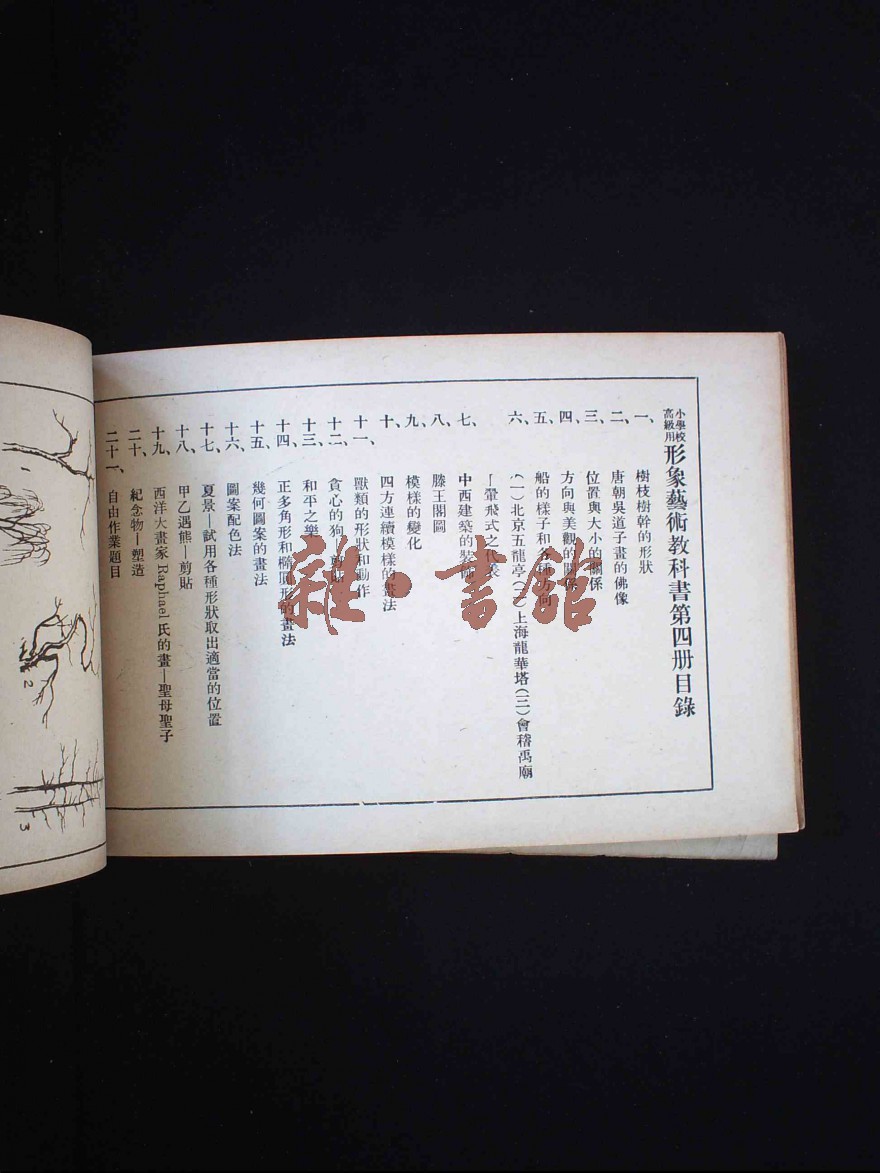 小學校
高級用
形象藝術教科書第四册目錄
一、樹枝樹幹的形狀
二、唐朝吳道子畫的佛像
三、位置與大小的關係
四、方向與美觀的關係
五、船的樣子和各種方向
六、(一)北京五龍亭(二)上海龍華塔(三)會稽禹廟
「翬飛式之代表
七、中西建築的裝飾
八、滕王閣圖
九、模樣的變化
十、四方連續模樣的畫法
十一、獸類的形狀和動作
十二、貪心的狗 剪貼
十三、和平之樂
十四、正多角形和橢圓形的畫法
十五、幾何圖案的畫法
十六、圖案配色法
十七、夏景—試用各種形狀取出適當的位置
十八、甲乙遇熊—剪貼
十九、西洋大畫家Raphael氏的畫—聖母聖子
二十、紀念物—塑造
二十一、自由作業題目
雜·書館
2
3